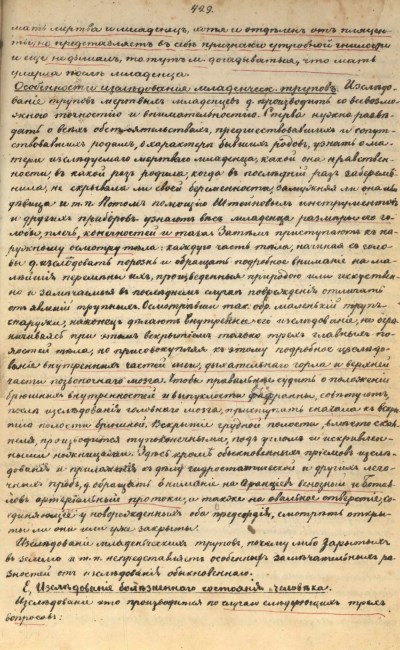 429.
мать мертва и младенецъ, хотя и отдѣленъ отъ плацен-
ты, но представляетъ въ себѣ признаки утробной гнилости
и еще не дышалъ, то тутъ м. догадываться, что мать
умерла послѣ младенца.
Особенности изслѣдованія младенческ. труповъ. Изслѣдо-
ваніе труповъ мертвыхъ младенцевъ д. производить со всевозмо-
жною точностію и внимательностію. Вперва нужно развѣ-
дать о всѣхъ обстоятельствахъ, предшествовавшихъ и сопут-
ствовавшихъ родамъ, о характерѣ бывшихъ родовъ, узнать о ма-
тери изслѣдуемаго мертваго младенца, какой она нравствен-
ности, въ какой разъ родила, когда въ послѣдній разъ заберемѣ-
нила, не скрывала ли своей беременности, замужняя ли она или
дѣвица и т.п. Потомъ помощію Штейновыхъ инструментовъ
и другихъ приборовъ узнаютъ вѣсъ младенца размѣры его го-
ловы, плечъ, конечностей и таза. Затѣмъ приступаютъ къ на-
ружному осмотру тѣла: каждую часть тѣла, начиная съ голо-
вы д. изслѣдовать порознь и обращать подробное вниманіе на ма-
лѣйшія перемѣны ихъ, произведенныя природою или искуствен-
но и замѣчаемыя въ послѣднемъ случаѣ поврежденія отличать
отъ явленій трупныхъ. Осмотрѣвши так. обр. маленькій трупъ
снаружи, наконецъ дѣлаютъ внутреннее его изслѣдованіе, не огра-
ничиваясь при этомъ вскрытіемъ только трехъ главныхъ по-
лостей тѣла, но присовокупляя къ этому подробное изслѣдо-
ваніе внутреннихъ частей шеи, дыхательнаго горла и верхней
части позвоночнаго мозга. Чтобы правильнѣе судить о положеніи
брюшныхъ внутренностей и выпуклости діафрагмы, совѣтуютъ,
послѣ изслѣдованія головнаго мозга, приступать сначала къ вскры-
тію полости брюшной. Вскрытіе грудной полости,
производится тупоконечными, подъ угломъ и искривлен-
ными ножницами. Здѣсь кромѣ обыкновенныхъ пріемовъ изслѣ-
дованія и приложенія къ дѣлу гидростатической и другихъ лего-
чныхъ пробъ, д. обращать вниманіе на Аранціевъ венозный и Ботал-
ловъ артеріальный протоки, а также на овальное отверстіе, со-
единяющее у новорожденныхъ оба предсердія, смотрѣть откры-
ты ли они или уже закрыты.
Изслѣдованіе младенческихъ труповъ, почему либо зарытыхъ
въ землю и т.п. непредставляетъ особенныхъ замѣчательныхъ ра-
зностей отъ изслѣдованія обыкновеннаго.
Е, Изслѣдованіе болѣзненнаго состоянія человѣка.
Изслѣдованіе это производится по случаю слѣдующихъ трехъ
вопросовъ: